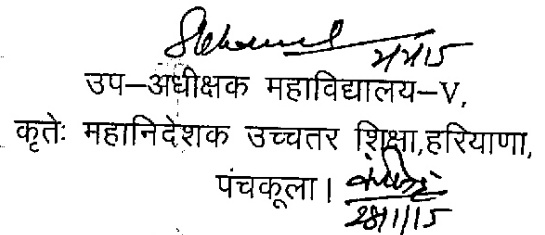 उप-अधीक्षक महाविद्यालय-V,
कृतेः महानिदेशक उच्चतर शिक्षा,हरियाणा,
पंचकूला।
28/1/15